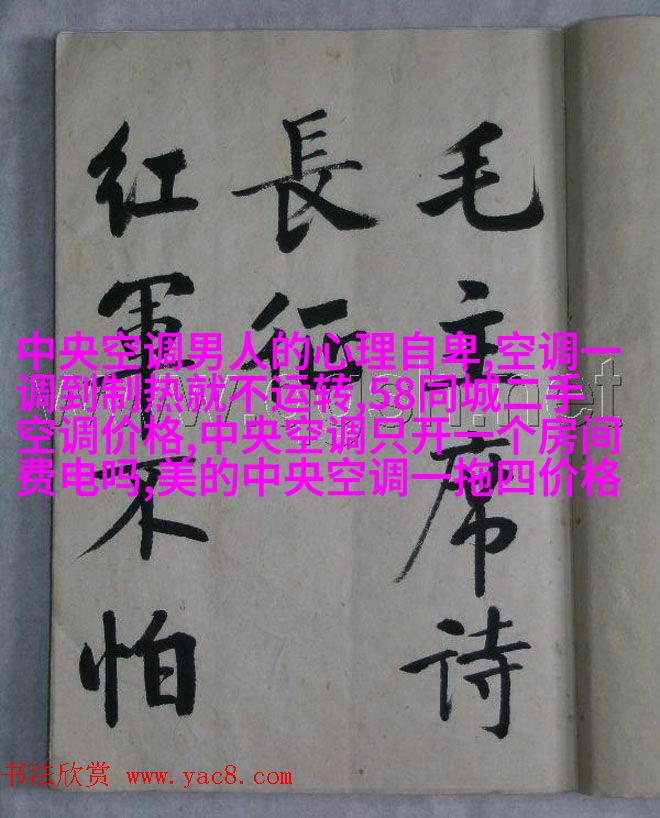 毛主席诗
長征
红軍不怕
中央空调男人的心理自卑,空调一
调到制热就不运转,58同城二手
空调价格,中央空调只开一个房间
费电吗,美的中央空调一拖四价格
书法欣赏 www.yac8.com